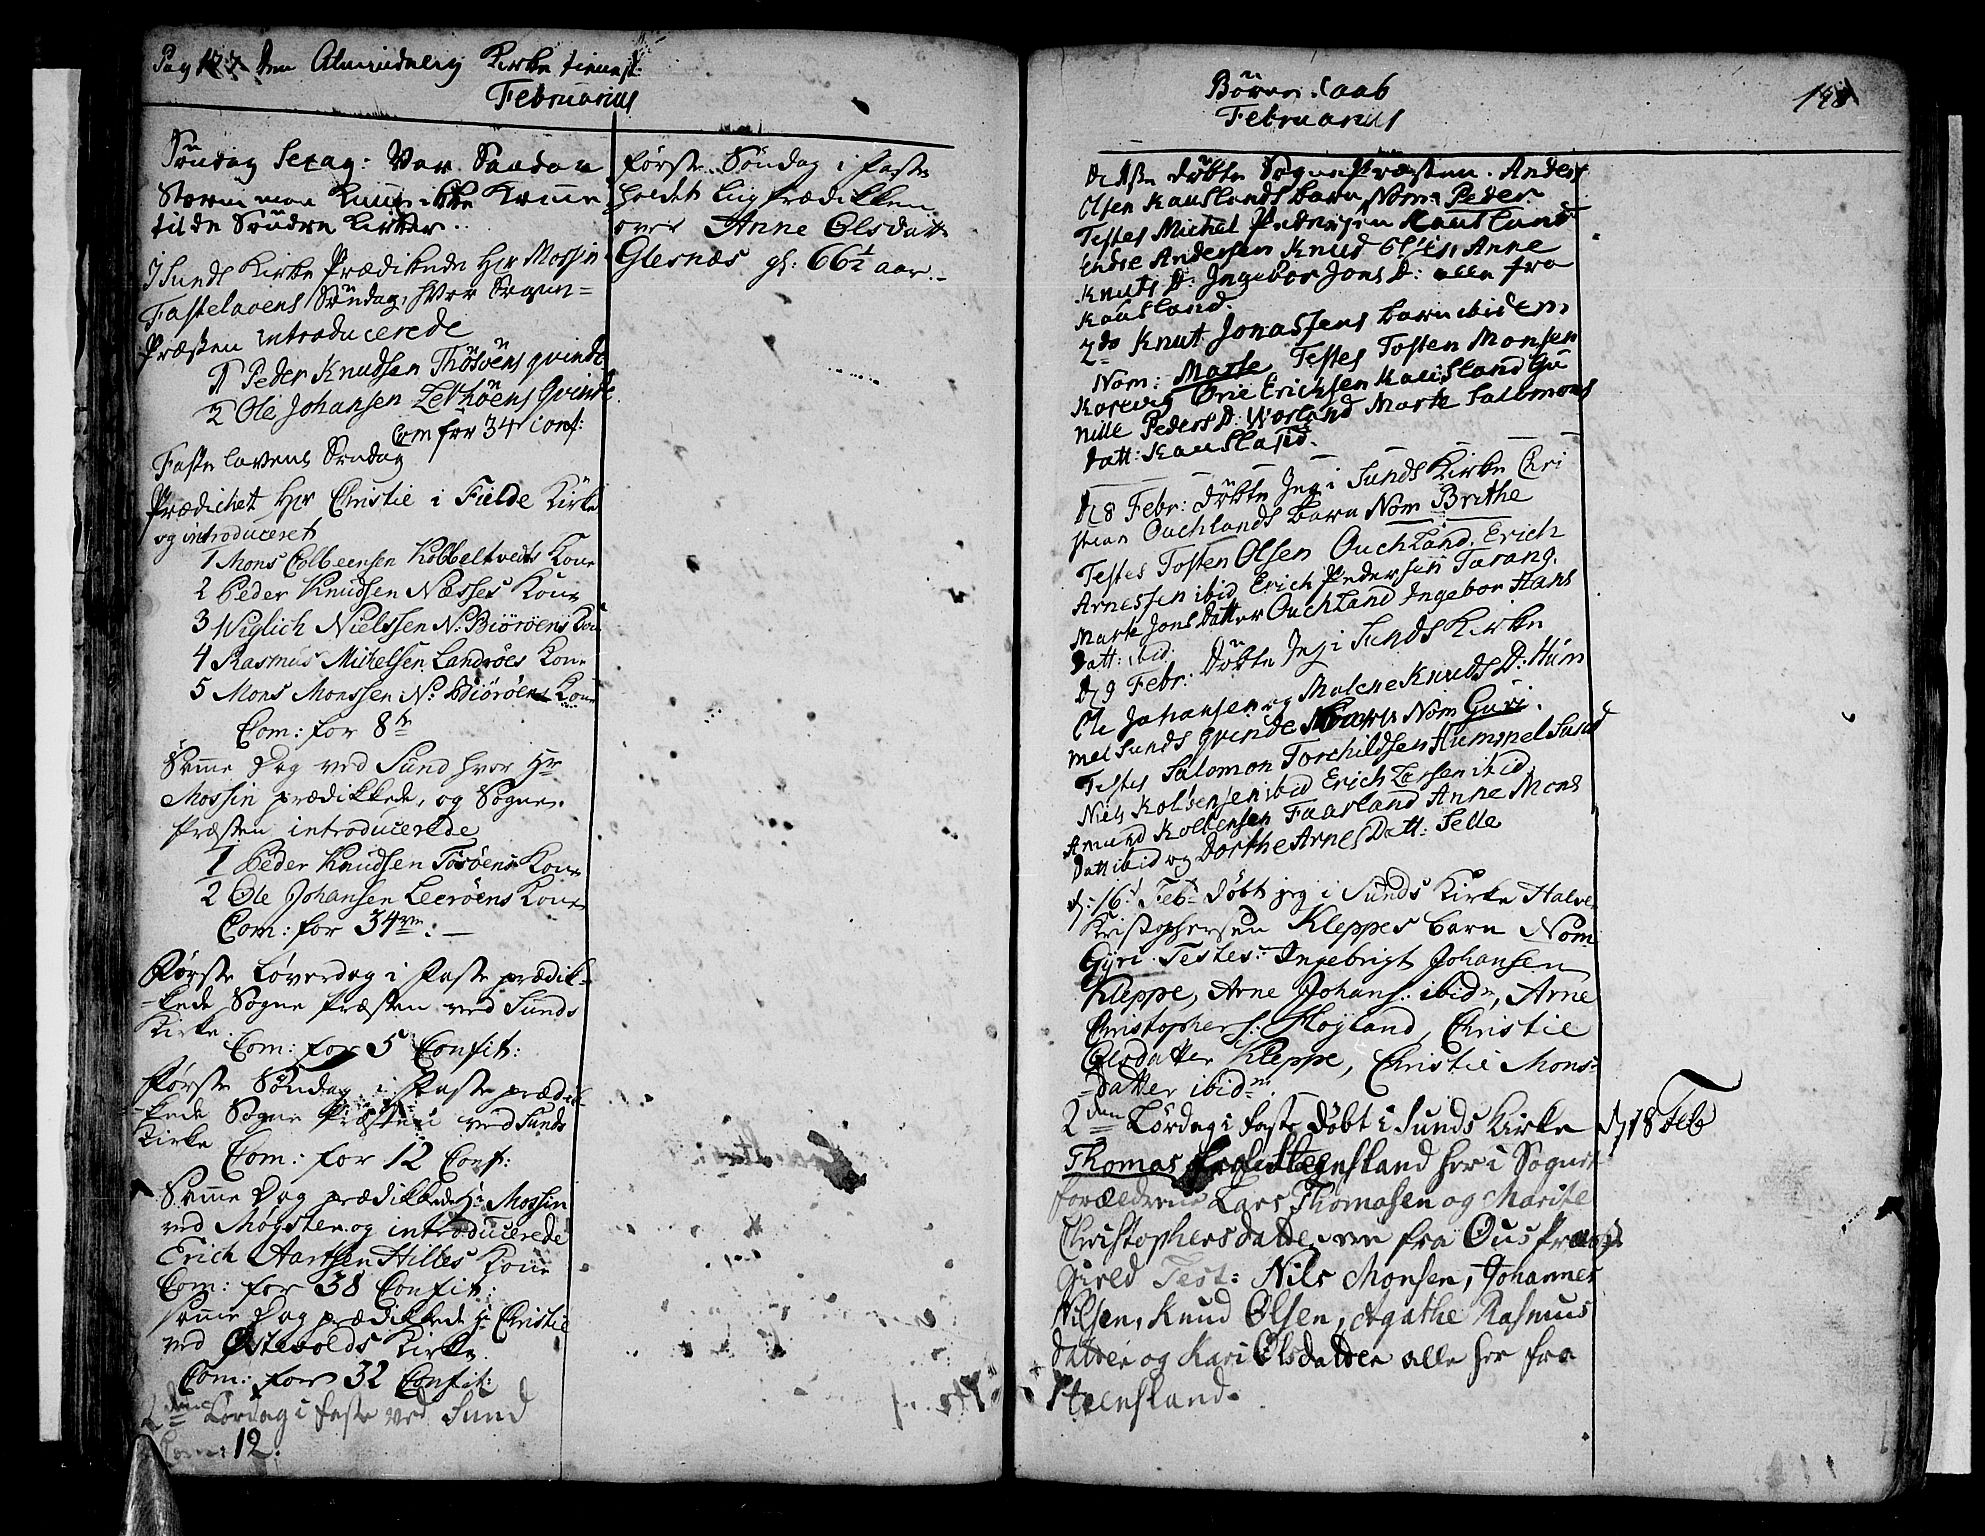 Pag 177 Den Almindelig Kirke tienest
Februarius
Søndag Sexag: Var Saadan
Storm man kunde ikke komme
til de Søndre Kirker.
I Sunds Kirke Prædikede Hr Mossin
Fastelavens Søndag, hvor Sogne=
Præsten introducerede
1 Peder Knudsen Thøsøens qvinde
2 Ole Johansen Lerhöens Qvinde
Com for 34 conf:
Fastelavens Søndag
Prædichet Hr Christie i Fielde Kirke
og introduceret
1 Mons Colbeensen Kobbeltvedts Kone
2 Peder Knudsen Næsses Kone
3 Wiglich Nielssen N: Biöröens Kone
4 Rasmus Michelsen Landröes Kone
5 Mons Monssen N: Biöröens Kone
Com: for 8
Samme Dag ved Sund hvor Hr
Mossin prædikkede, og Sogne
Præsten introducerede
1 Peder Knudsen Tosöens Kone
2 Ole Johansen Leeröens Kone
Com: for 34
Første Løverdag i Faste prædik=
=kede Sogne Præsten ved Sunds
Kirke.
Com: for 5 Confit:
Første Søndag i Faste prædik
=kede Sogne Præsten ved Sunds
Kirke
Com: for 12 Conf:
Samme Dag prædikkede Hr Mossin
ved Møgster og introducerede
Erich Hilles Kone
Com: for 38 Confit:
Samme Dag prædikkede Hr Christie
ved Østevolds Kirke
Com: for 32 Confit:
2den Lørdag i Faste ved Sund
Com: 12.
Første Søndag i Faste
holdet Liigprædikken
over Anne Olsdatt:
Glesnæs gl: 66½ aar.
Børne Daab
Februarius
178
døbte Sogne Præsten Anders
Olsen Kauslands barn Nom: Peder
Testes Michel Pedersen Kausland
Endre Andersen Knud Olsen, Anne
Knuts D: Ingebor Jons D: alle fra
Kausland.
2do Knut Jonassens barn ibidem
Nom: Marte Testes Tosten Monsen
Kortvig Erichsen Kausland Gu
nille Peders D: Worland Marte Salomons
datt: Kausland.
D 8 Febr: Döbte Jeg i Sunds Kirke Chri
stian Ouchlands barn Nom Brithe
Testes Tosten Olsen Ouchland, Erich
Arnessen ibid Erich Pedersen Tarang.
Marte Jons Datter Ouchland Ingebor Hans
Datt: ibid.
D 9 Febr: Döbte Jeg i Sunds Kirke
Ole Johansen og Malene Knuds D: Hum
mel Sunds qvinde barn Nom Guri.
Testes Salomon Torchildsen Hummel Sund
Niels Kolbensen ibid Erich Larsen ibid
Amund Kolbensen Faarland Anne Mons
Datt ibid og Dorthe Arnes Datt: Selle
d: 16 Feb: Døbt jeg i Sunds Kirke Halver
Kristophersen Kleppes barn Nom
Gyri Testes: Ingebrigt Johansen
Kleppe, Arne Johans: ibidm, Arne
Christophers: Høyland, Christie
Olsdatter Kleppe, Christie Mons=
=datter ibidm
2den Lørdag i Faste Døbt i Sunds Kirke
d 18 Feb
Thomas Steensland her i Sognet
forældrene Lars Thomasen og Marite
Christophersdatter fra Ous Præste
gield Test: Nils Monsen, Johannes
Nilsen, Knud Olsen, Agathe Rasmus
datter og Kari Olsdatter alle her fra
Steensland.